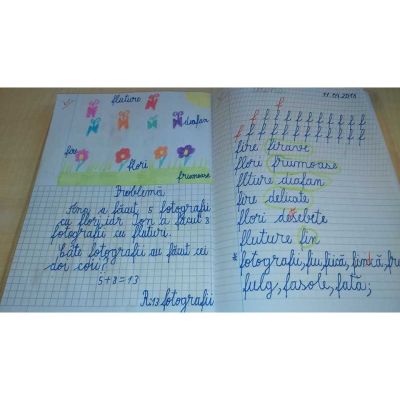 fluture
diafan
fire
flori
frumoase
Problemă
Ana a făcut 5 fotografii
cu flori, iar Ion a făcut 8
fotografii cu fluturi.
Câte fotografii au făcut cei
doi copii?
5+8=13
R: 13 fotografii
f
f f f f f f f f f f f
f f f f f f f f f f f
fire firave
flori frumoase
fluture diafan
fire delicate
flori deosebite
fluture fin
* fotografii, fiu, fiică,
fulg, fasole, fată;